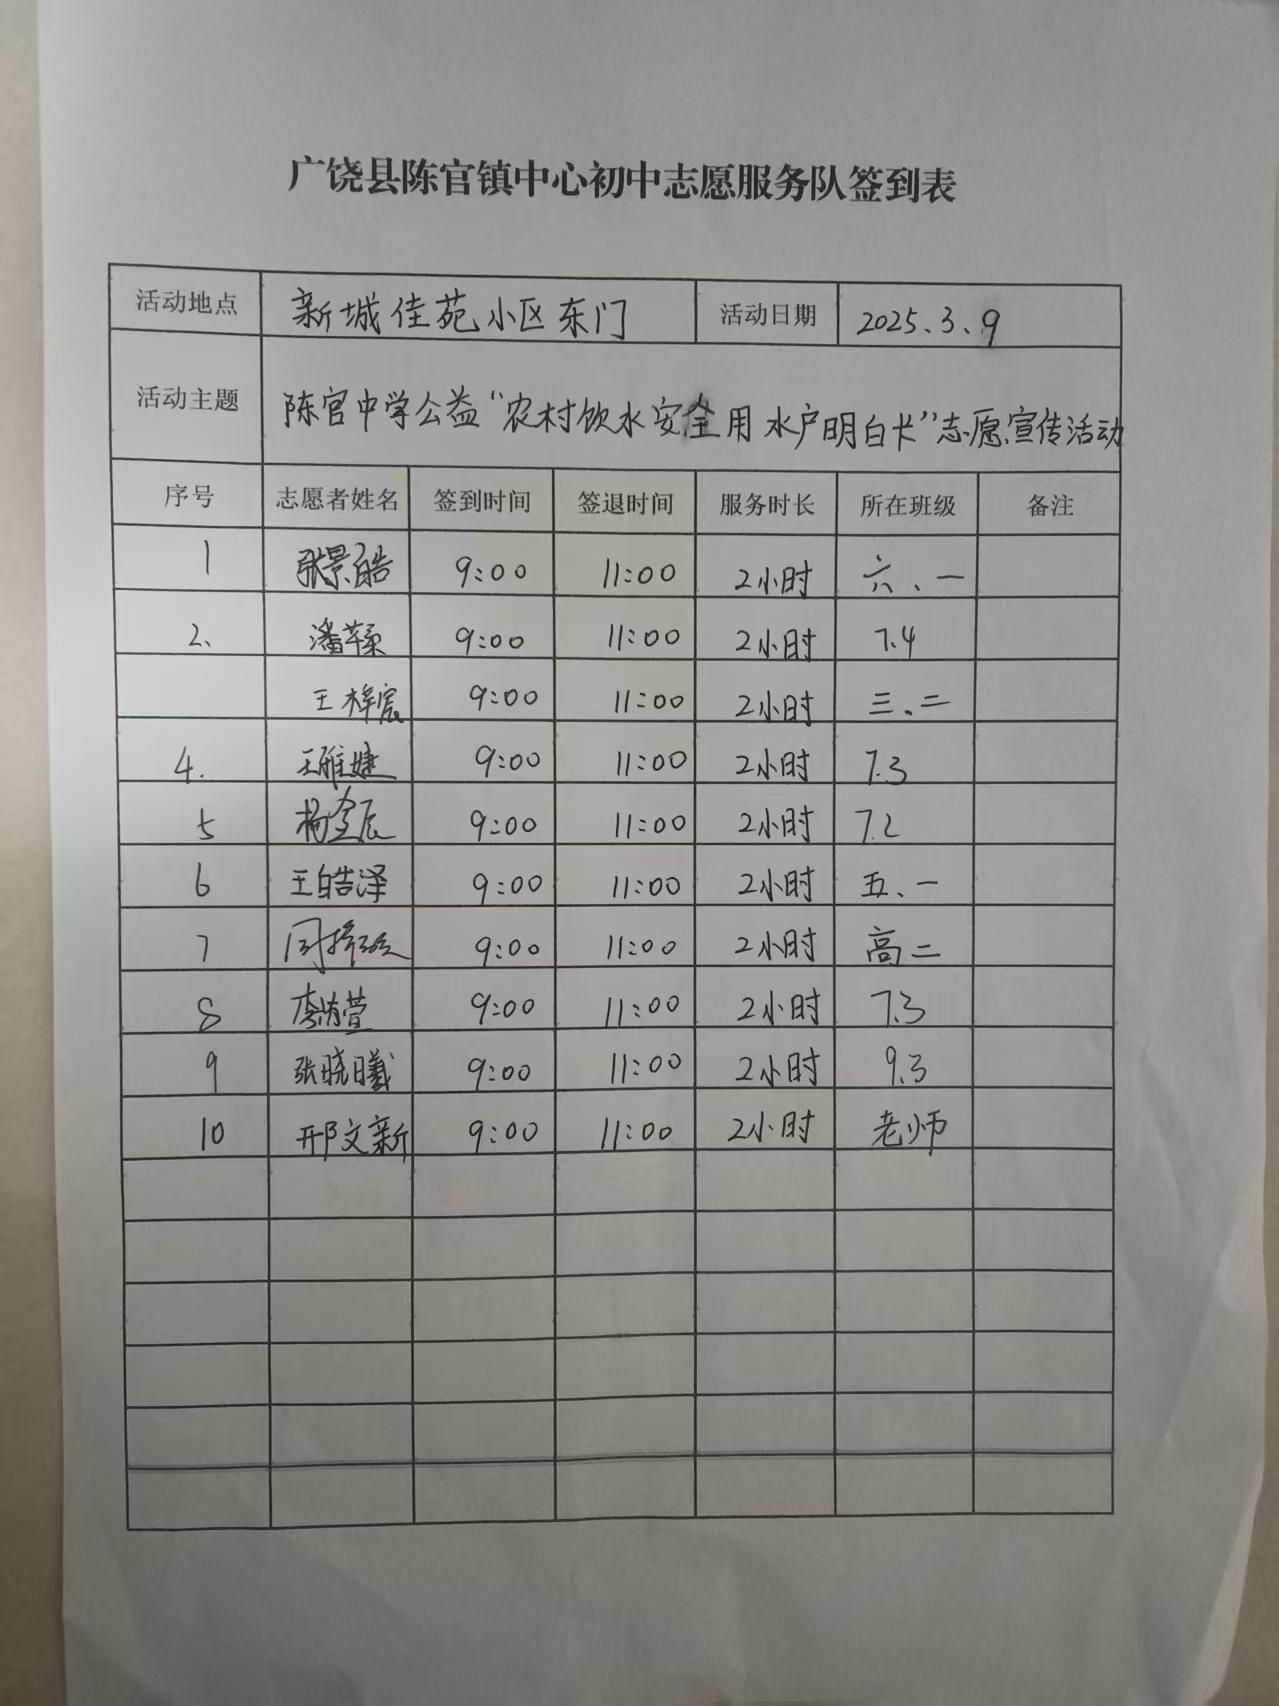 广饶县陈官镇中心初中志愿服务队签到表
活动地点 新城佳苑小区东门 活动日期 2025.3.9
活动主题 陈官中学公益“农村饮水安全用水户明白卡”志愿宣传活动
序号 志愿者姓名 签到时间 签退时间 服务时长 所在班级 备注
1 张景皓 9:00 11:00 2小时 六、一
2、 潘 9:00 11:00 2小时 7.4
王梓宸 9:00 11:00 2小时 三、二
4. 王雅婕 9:00 11:00 2小时 7.3
5 杨金辰 9:00 11:00 2小时 7.2
6 王皓泽 9:00 11:00 2小时 五、一
7 9:00 11:00 2小时 高二
8 萱 9:00 11:00 2小时 7.3
9 张晓曦 9:00 11:00 2小时 9.3
10 邢文新 9:00 11:00 2小时 老师